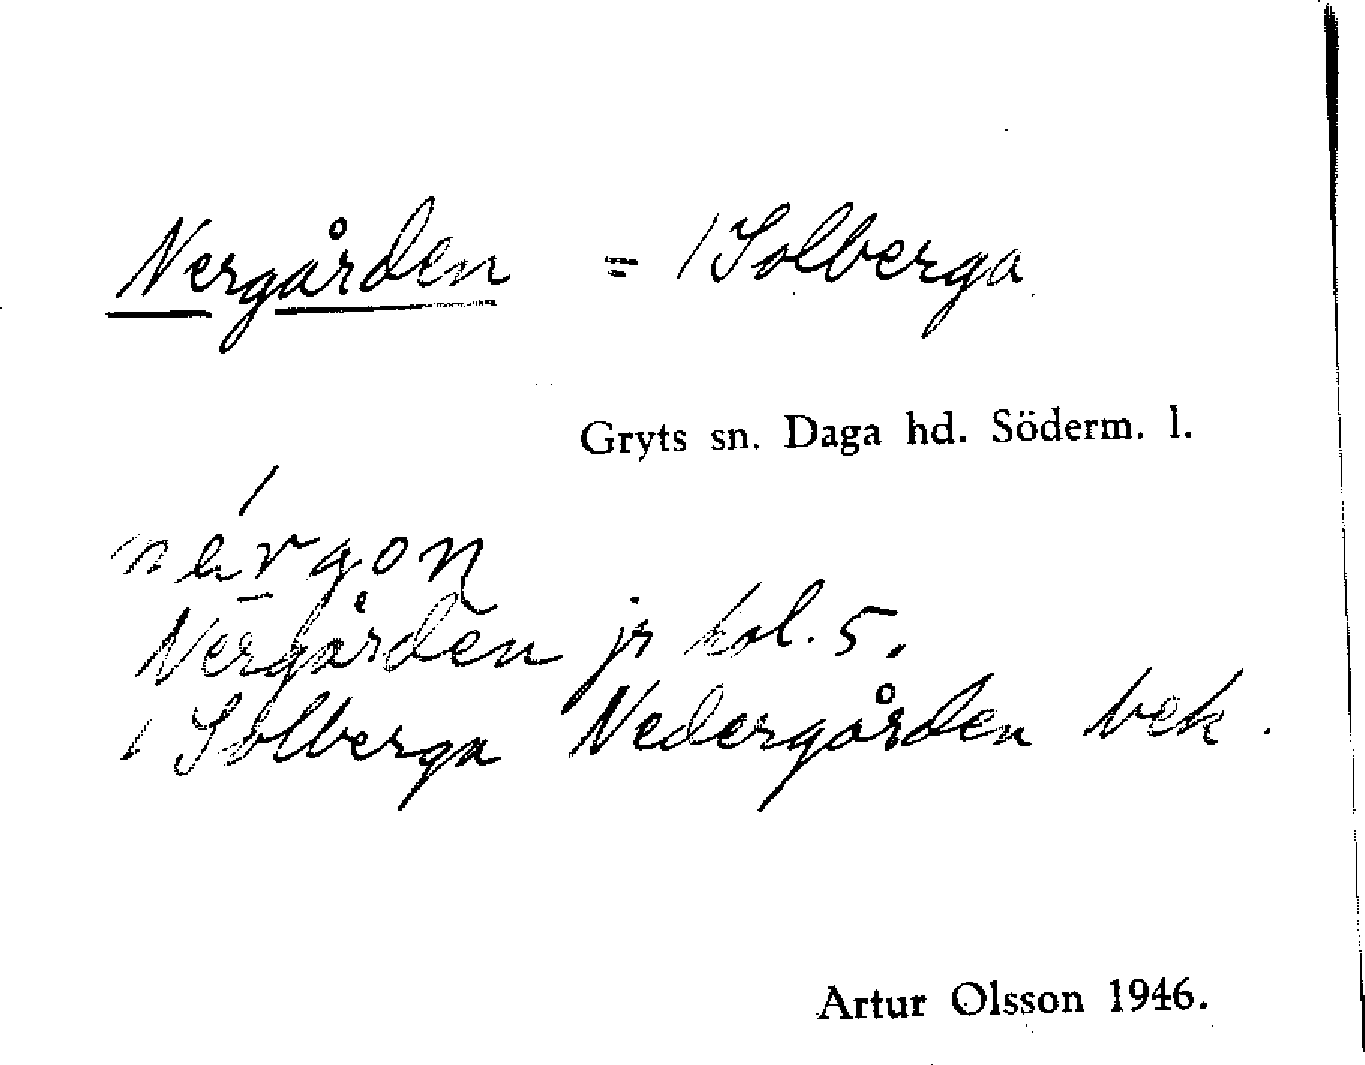 Nergården = /Solberga
Gryts sn. Daga hd. Söderm. l.
nérgon
Nergården jr kol. 5.
/ Solberga Nedergården bek.
Artur Olsson 1946.